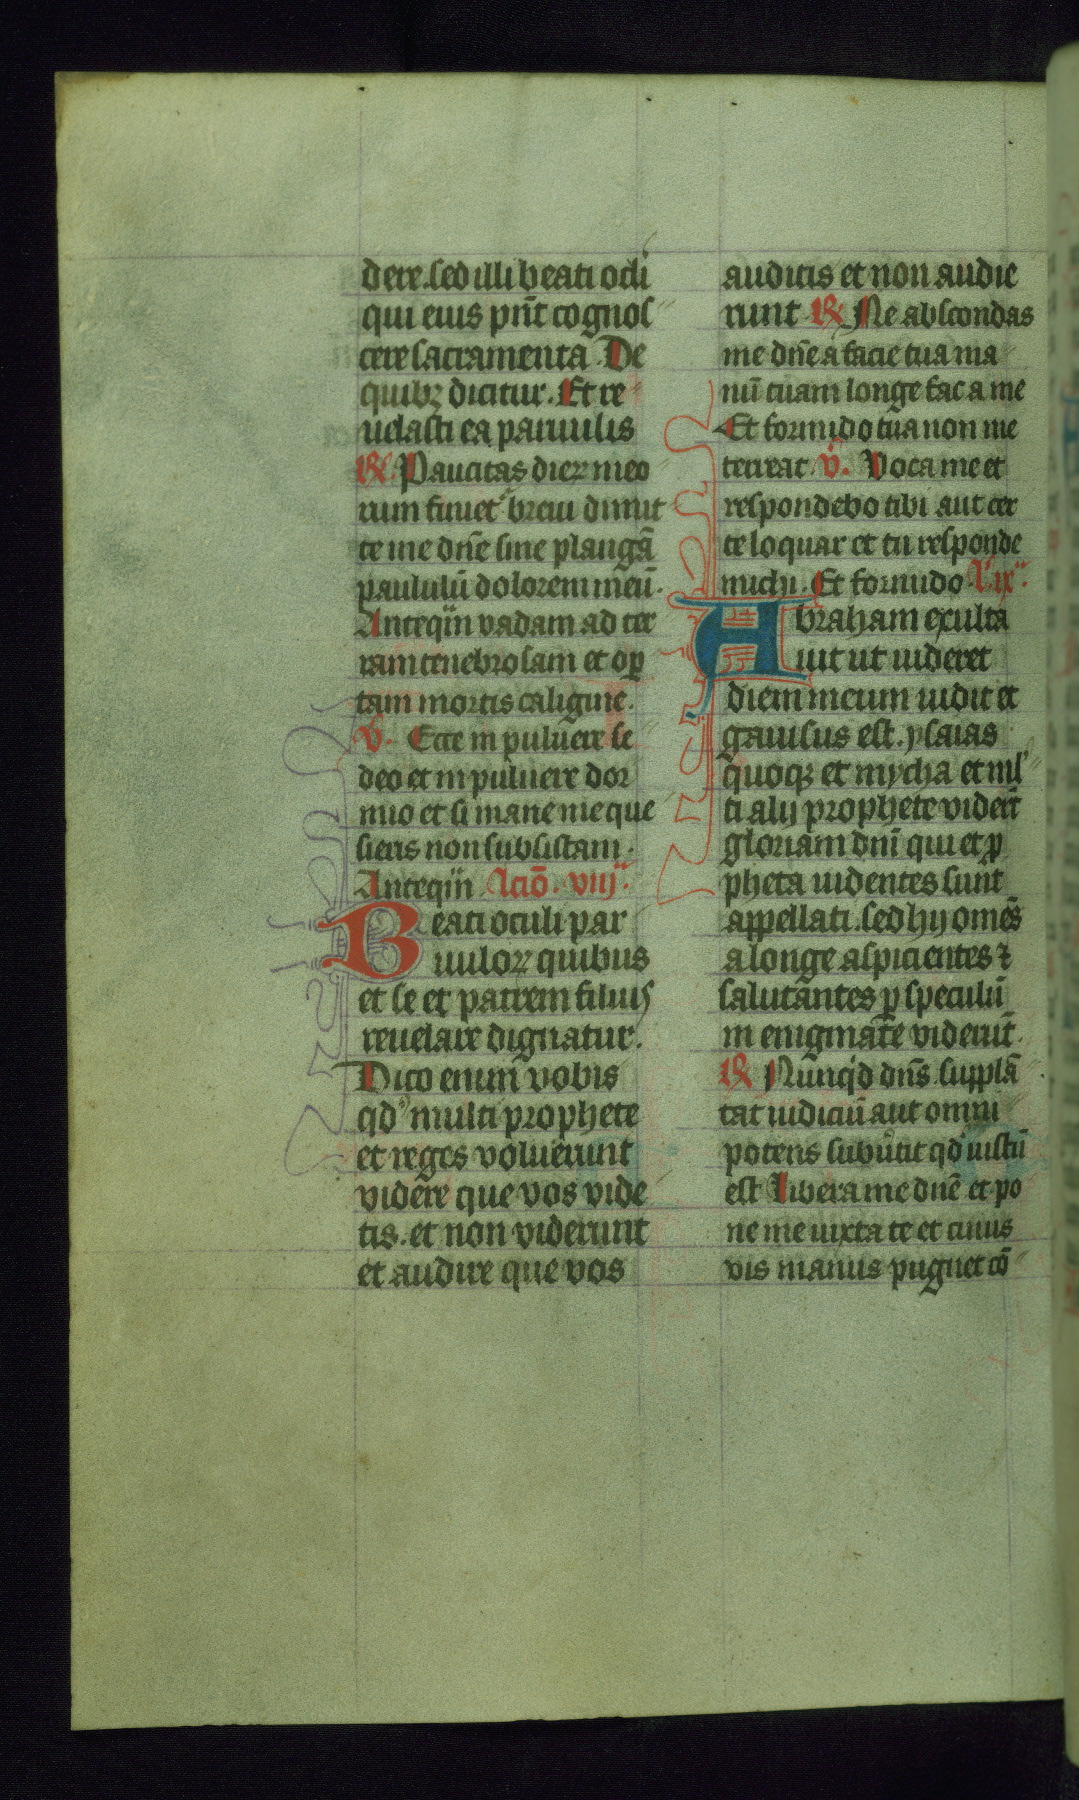 dere. sed illi beati oc̅li
qui eius pn̅t cognos
cere sacramenta. De
quibꝫ dicitur. Et re
uelasti ea paruulis
℞. Paucitas dierꝝ meo
rum finiet᷑ breui dimit
te me dn̅e sine plangā
paululū dolorem meū.
Anteqͣm vadam ad ter
ram tenebrosam et op̱
tam mortis caligine.
℣. Ecce in puluere se
deo et in puluere dor
mio et si mane me que
sieris non subsistam.
Anteqͣm Lcīo. viijͣ.
Beati oculi par
uuloꝝ quibus
et se et patrem filius
reuelare dignatur.
Dico enim vobis
qd̓ multi prophete
et reges voluerunt
videre que vos vide
tis. et non viderunt
et audire que vos
auditis et non audie
runt ℞. Ne abscondas
me dn̅e a facie tua ma
nū tuam longe fac a me
Et formido tua non me
terreat. v̓. Voca me et
respondebo tibi aut cer
te loquar et tu responde
michi. Et formido. L̓. ixͣ.
Abraham exulta
uit ut uideret
diem meum uidit et
gauisus est. ysaias
quoqꝫ et mycha et ml̓
ti alij prophete viderūt
gloriam dn̅i qui et ꝓ
pheta uidentes sunt
appellati. sed hij om̅s
a longe aspicientes ⁊
salutantes ꝑ speculū
in enigmate viderūt.
℞. Nunqͥd dn̅s supplā
tat iudiciū aut omni
potens subuͤtit qd̓ iustū
est Libera me dn̅e et po
ne me iuxta te et cuius
vis manus pugnet cō